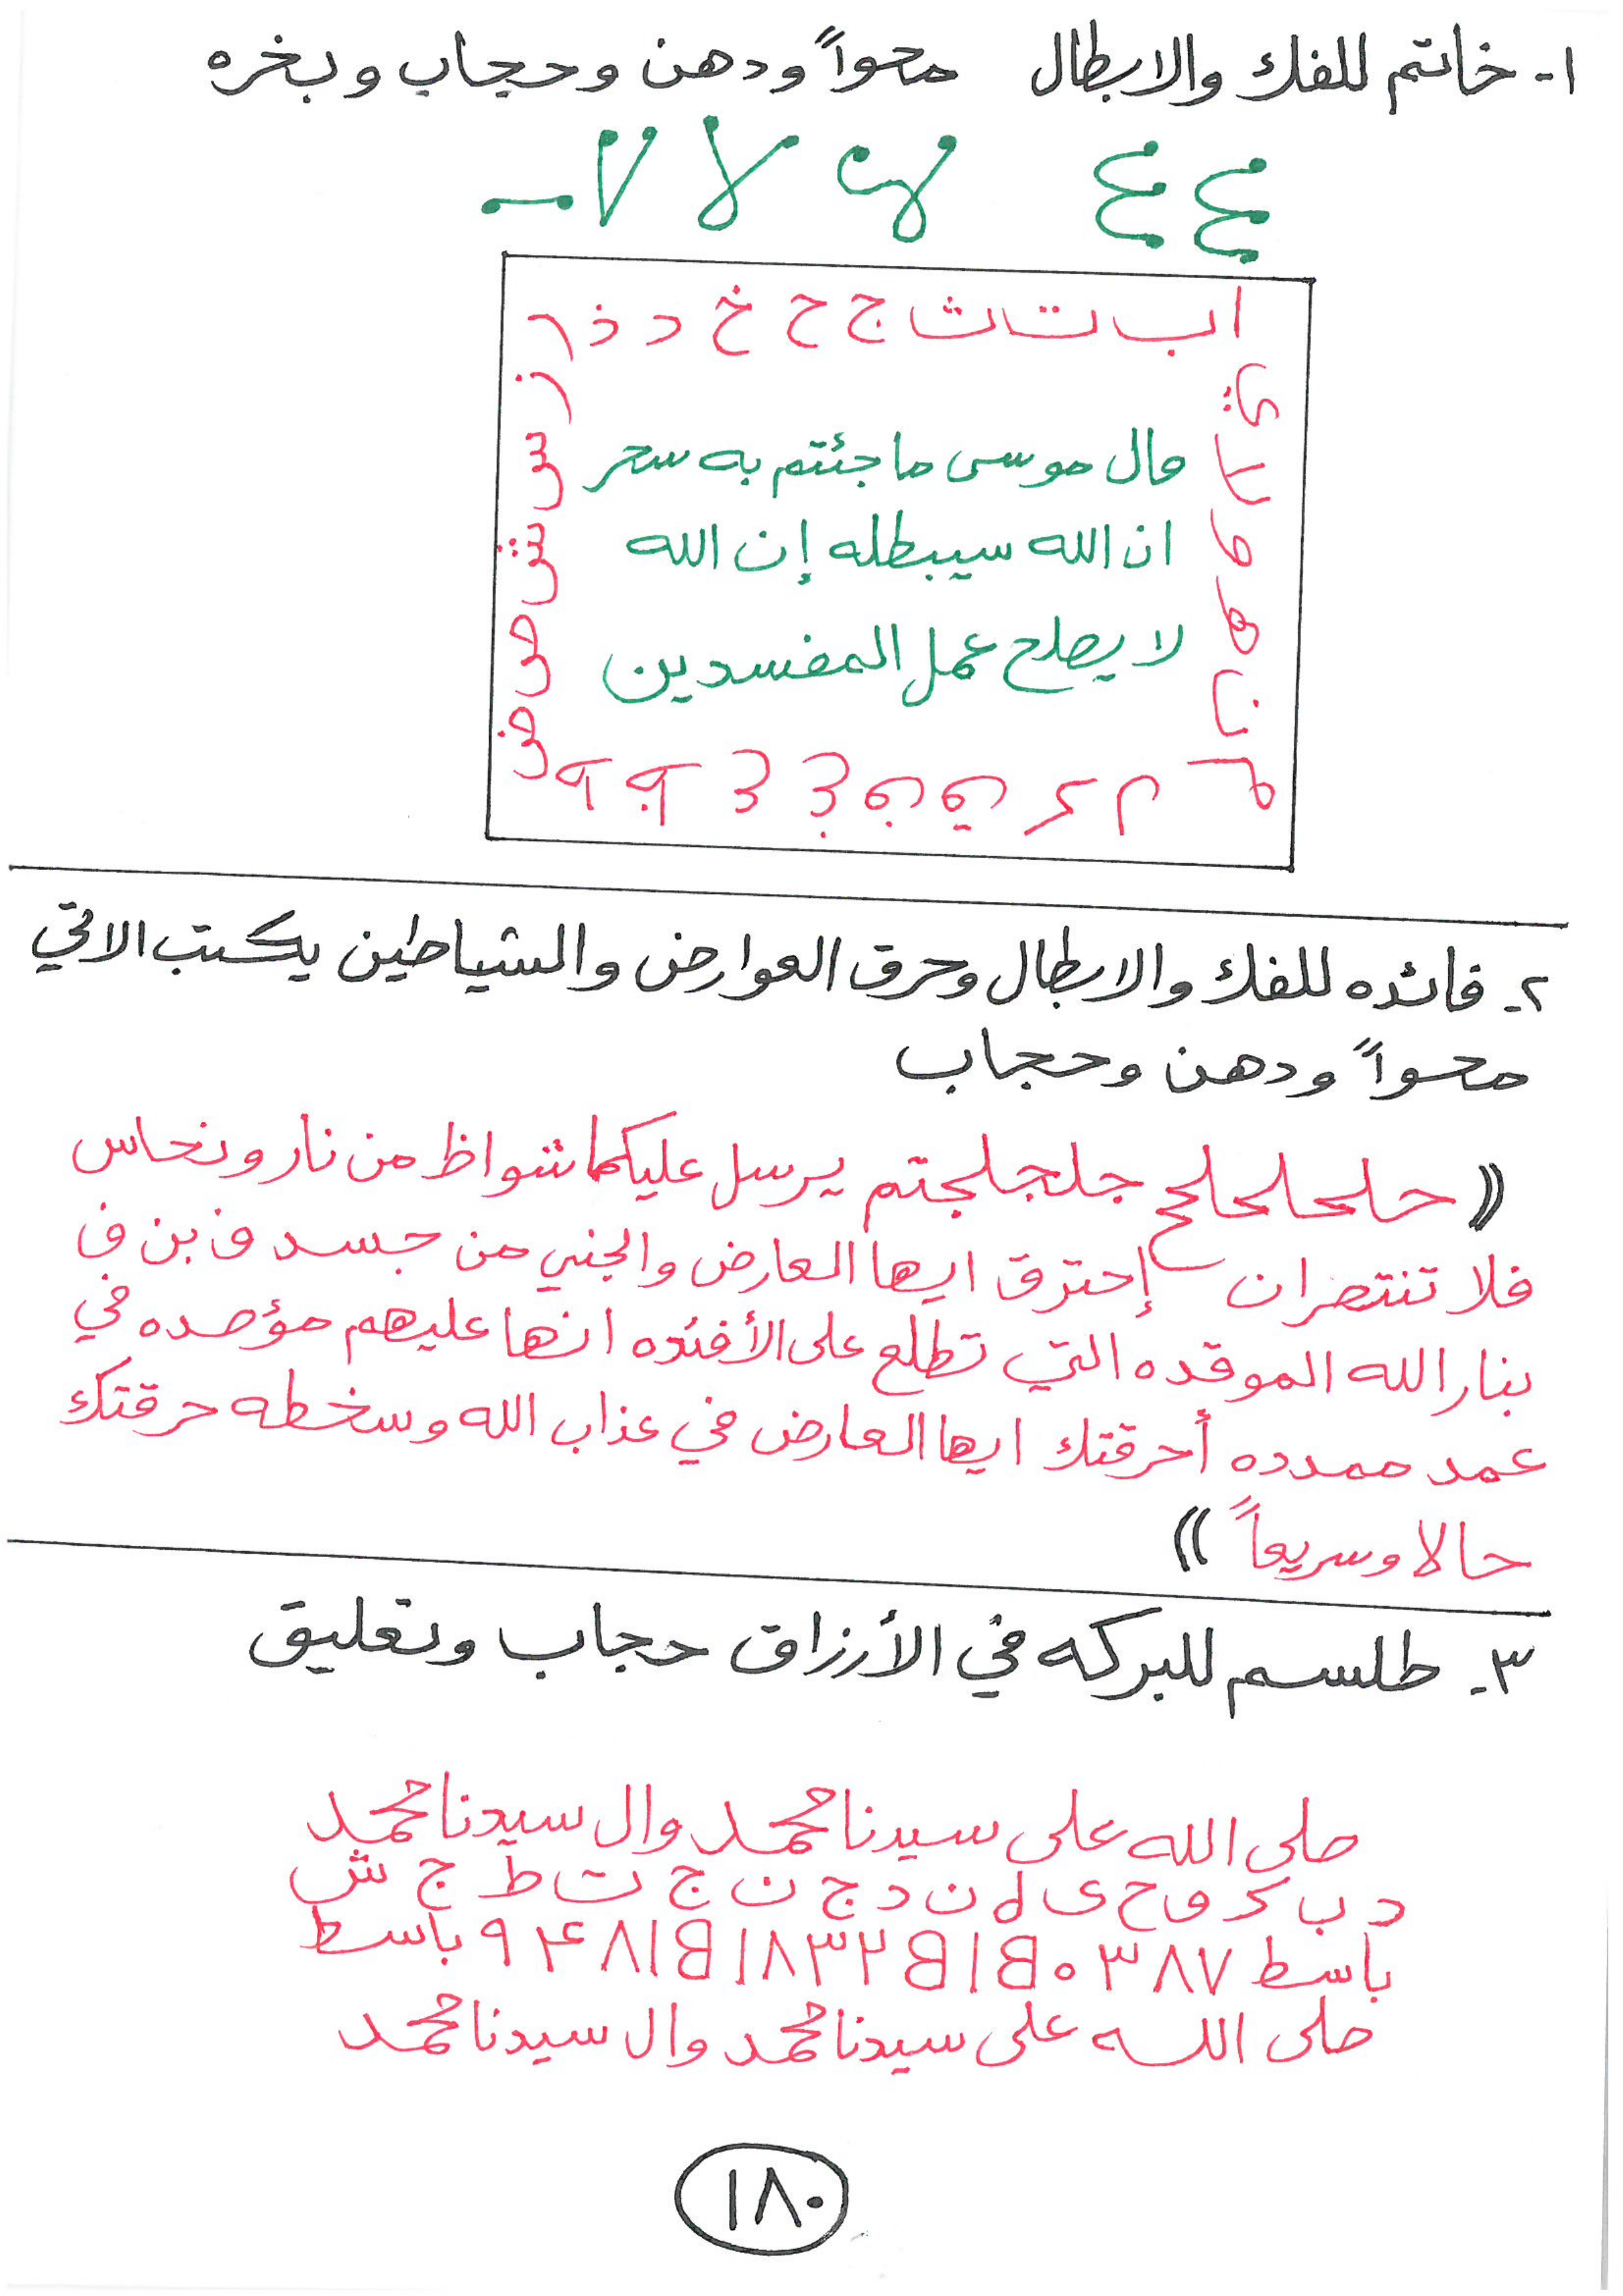 ١- خاتم للفك والابطال محواً ودهن وحجاب وبخره
ع ع
ا ب ت ث ج ح خ د ذ ر
ز س ش ص ض
ط ظ ع غ ف ق ك ل م
ن ه و لا ي
قال موسى ما جئتم به سحر
ان الله سيبطله إن الله
لا يصلح عمل المفسدين
٢- فائده للفك والابطال وحرق العوارض والشياطين يكتب الاتي
محواً ودهن وحجاب
(( حلحلحلح جلجلجتم يرسل عليكما شواظ من نار ونحاس
فلا تنتصران إحترق ايها العارض والجني من جسد ف بن ف
بنار الله الموقده التي تطلع على الأفئده انها عليهم مؤصده في
عمد ممدده أحرقتك ايها العارض في عذاب الله وسخطه حرقتك
حالا وسريعاً ))
٣- طلسم للبركه في الأرزاق حجاب وتعليق
صلى الله على سيدنا محمد وال سيدنا محمد
د ب ك و ح ى ل ن د ج ن ج ت ط ج ش
باسط ٧ ٨ ٣ ٠ B ١ B ٢ ٣ ٨ ١ B ١ ٨ ۴ ٩ باسط
صلى الله على سيدنا محمد وال سيدنا محمد
١٨٠